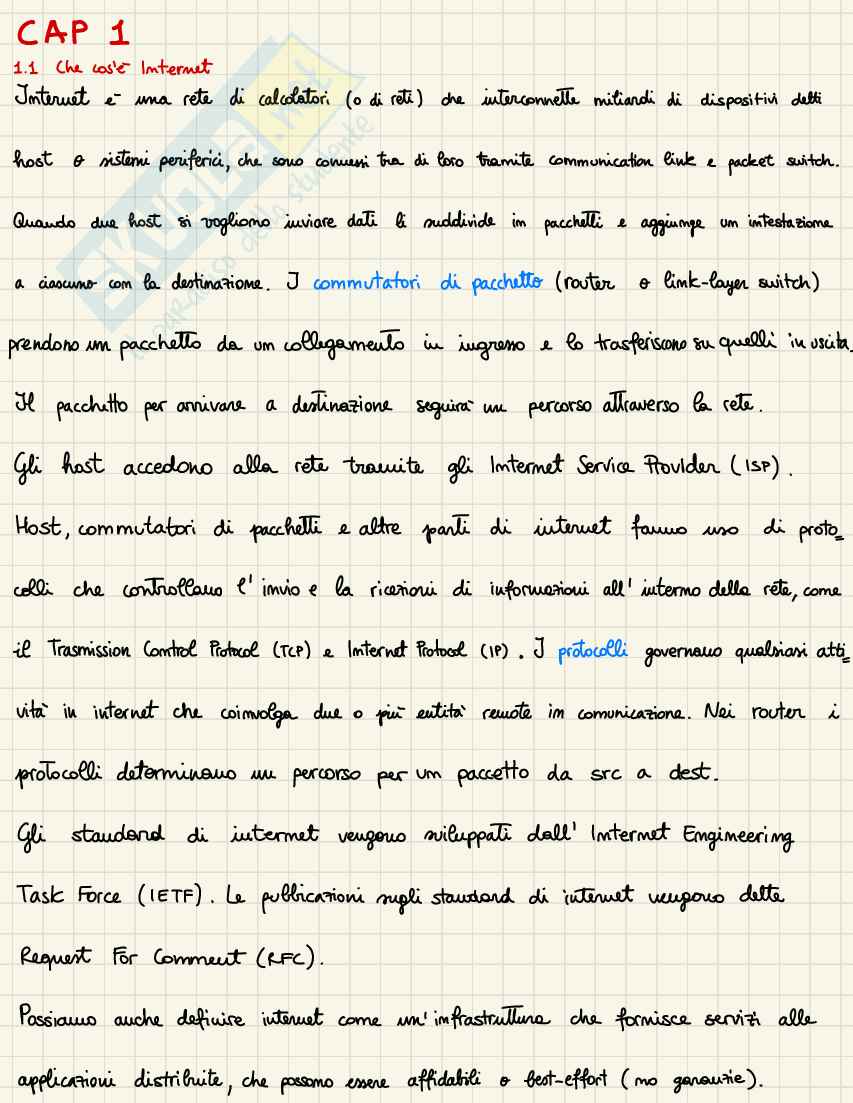 CAP 1
1.1 Che cos'è Internet
Internet è una rete di calcolatori (o di reti) che interconnette miliardi di dispositivi detti
host o sistemi periferici, che sono connessi tra di loro tramite communication link e packet switch.
Quando due host si vogliono inviare dati li suddivide in pacchetti e aggiunge un intestazione
a ciascuno con la destinazione. I commutatori di pacchetto (router o link-layer switch)
prendono un pacchetto da un collegamento in ingresso e lo trasferiscono su quelli in uscita.
Il pacchetto per arrivare a destinazione seguirà un percorso attraverso la rete.
Gli host accedono alla rete tramite gli Internet Service Provider (ISP).
Host, commutatori di pacchetti e altre parti di internet fanno uso di proto=
colli che controllano l'invio e la ricezioni di informazioni all'interno della rete, come
il Trasmission Control Protocol (TCP) e Internet Protocol (IP). I protocolli governano qualsiasi atti=
vità in internet che coinvolga due o più entità remote in comunicazione. Nei router i
protocolli determinano un percorso per un paccetto da src a dest.
Gli standard di internet vengono sviluppati dall'Internet Engineering
Task Force (IETF). Le pubblicazioni sugli standard di internet vengono dette
Request For Comment (RFC).
Possiamo anche definire internet come un'infrastruttura che fornisce servizi alle
applicazioni distribuite, che possono essere affidabili o best-effort (no garanzie).
SKUOLA.net
il paradiso dello studente